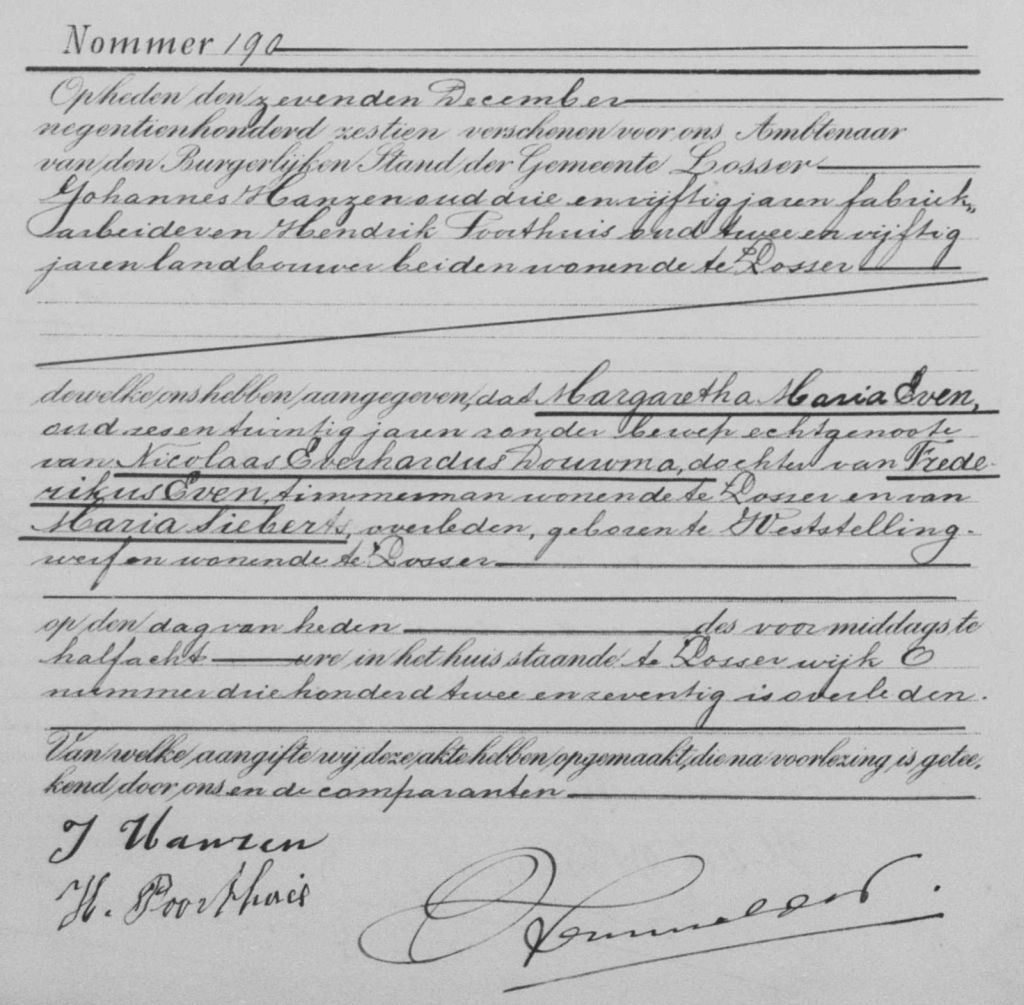 Nommer 190
Op heden den zevenden December
negentienhonderd zestien verschenen voor ons Ambtenaar
van den Burgerlijken Stand der Gemeente Losser
Johannes Hanzen oud drie en vijftig jaren fabriek„
arbeider en Hendrik Poorthuis oud twee en vijftig
jaren landbouwer beiden wonende te Losser
dewelke ons hebben aangegeven, dat Margaretha Maria Even,
oud zes en twintig jaren zonder beroep echtgenoote
van Nicolaas Everhardus Douwma, dochter van Frede-
rikus Even, timmerman wonende te Losser en van
Maria Sieberts, overleden, geboren te Weststelling-
werf en wonende te Losser
op den dag van heden des voormiddags te
half acht ure in het huis staande te Losser wijk C
nummer driehonderd twee en zeventig is overleden.
Van welke aangifte wij deze akte hebben opgemaakt, die na voorlezing is getee-
kend door ons en de comparanten
J Hanzen
H. Poorthuis